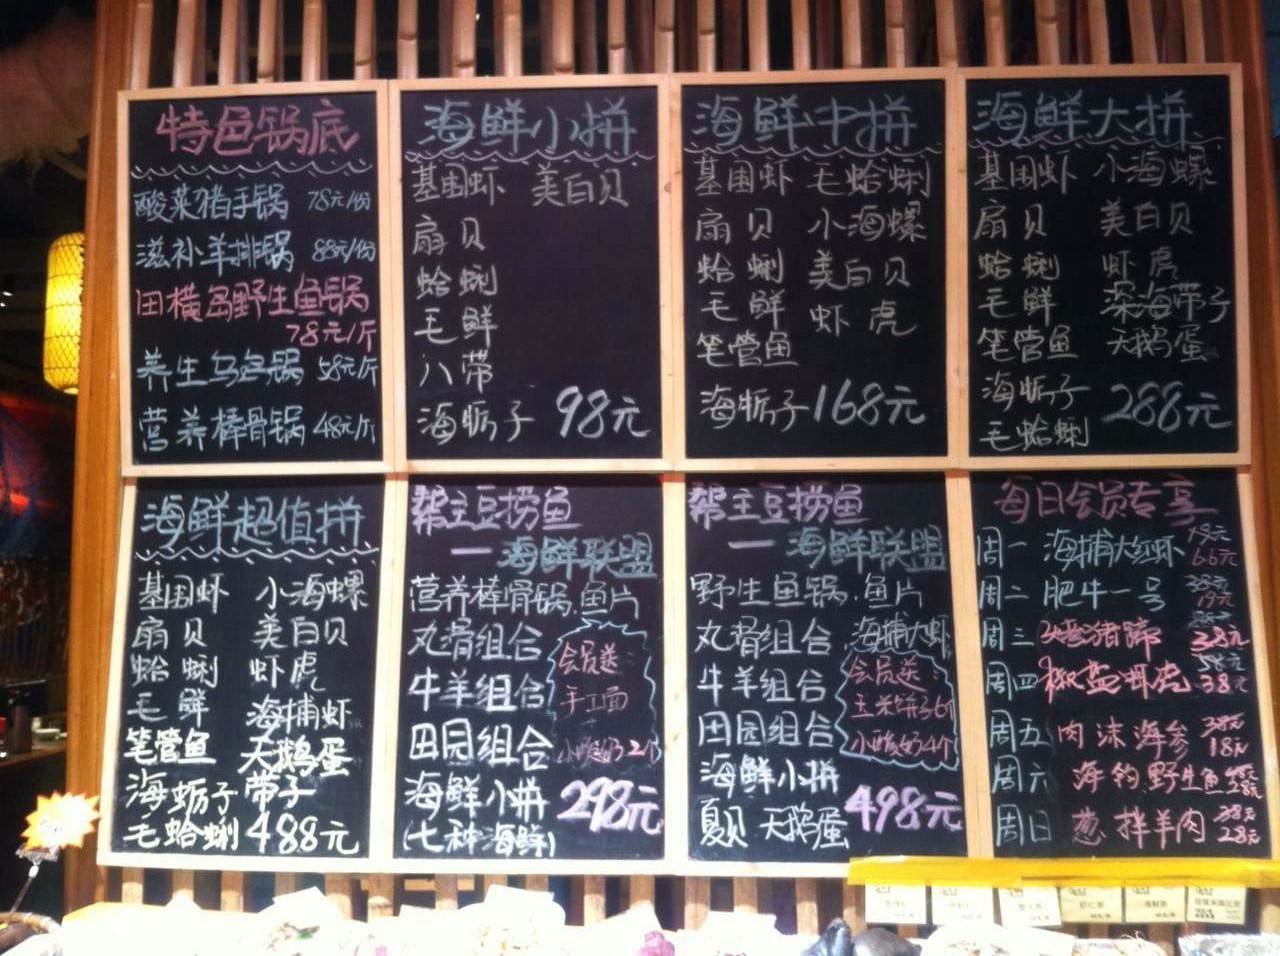 特色锅底
酸菜猪手锅 78元/份
滋补羊排锅 88元/份
田横岛野生鱼锅
78元/斤
养生乌鱼锅 58元/斤
营养棒骨锅 48元/斤
海鲜小拼
基围虾 美白贝
扇贝
蛤蜊
毛鲜
八带
海蛎子 98元
海鲜中拼
基围虾 毛蛤蜊
扇贝 小海螺
蛤蜊 美白贝
毛鲜 虾虎
笔管鱼
海蛎子 168元
海鲜大拼
基围虾 小海螺
扇贝 美白贝
蛤蜊 虾虎
毛鲜 深海带子
笔管鱼 天鹅蛋
海蛎子 288元
毛蛤蜊
海鲜超值拼
基围虾 小海螺
扇贝 美白贝
蛤蜊 虾虎
毛鲜 海捕虾
笔管鱼 天鹅蛋
海蛎子 带子
毛蛤蜊 488元
帮主豆捞鱼
一海鲜联盟
营养棒骨锅.鱼片
丸滑组合
牛羊组合
田园组合
海鲜小拼 298元
(七种海鲜)
会员送:
手工面
小酸奶2个
帮主豆捞鱼
一海鲜联盟
野生鱼锅.鱼片
丸滑组合 海捕大虾
牛羊组合
田园组合
海鲜小拼
夏贝 天鹅蛋 498元
会员送:
玉米饼子6个
小酸奶4个
每日会员专享
周一 海捕大红虾 66元
周二 肥牛一号 19元
周三 猪蹄 38元
周四 椒盐虾虎 38元
周五 肉沫海参 38元 18元
周六 海钓野生鱼 28元
周日 葱拌羊肉 38元 28元